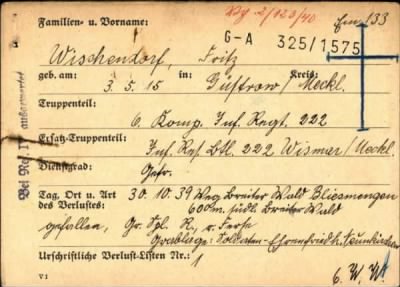 Familien- u. Vorname:
Wg. 2/123/40
Em 133
G-A 325/1575
Wischendorf, Fritz
geb. am: in: Kreis:
3. 5. 15 Güstrow / Meckl.
Truppenteil:
6. Komp. Inf. Regt. 222
Ersatz-Truppenteil:
Inf. Ers. Btl. 222 Wismar / Meckl.
Dienstgrad:
Gefr.
Tag, Ort u. Art
des Verlustes:
30. 10. 39 Weg Breiter Wald Bliesmengen
600m südl. Breiter Wald
gefallen, Gr. Spl. R. u. Ferse
Grablage: Soldaten-Ehrenfriedh. Neunkirchen
Urschriftliche Verlust-Listen Nr.: 1
V 1
6. W. W.
Bei Ref. IV ausgewertet